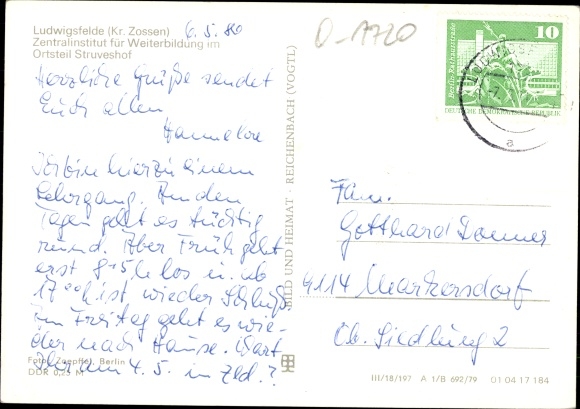 Ludwigsfelde (Kr. Zossen)
Zentralinstitut für Weiterbildung im
Ortsteil Struveshof
6.5.80
0-1720
Herzliche Grüße sendet
Euch allen
Hannelore
Ich bin hier zu einem
Lehrgang. An den
Tagen geht es tüchtig
rund. Aber Früh geht
erst 8 15 h los u. ab
17 00 h ist wieder Schluß
am Freitag geht es wie-
der nach Hause. Wart
Ihr am 4.5. in
Foto: Zaepffel, Berlin
DDR 0,25 M
BILD UND HEIMAT · REICHENBACH (VOGTL)
10
Berlin, Rathausstraße
DEUTSCHE DEMOKRATISCHE REPUBLIK
a
Fam.
Gotthard
9114 Markersdorf
Ob. Siedlung 2
III/18/197 A 1/B 692/79 01 04 17 184